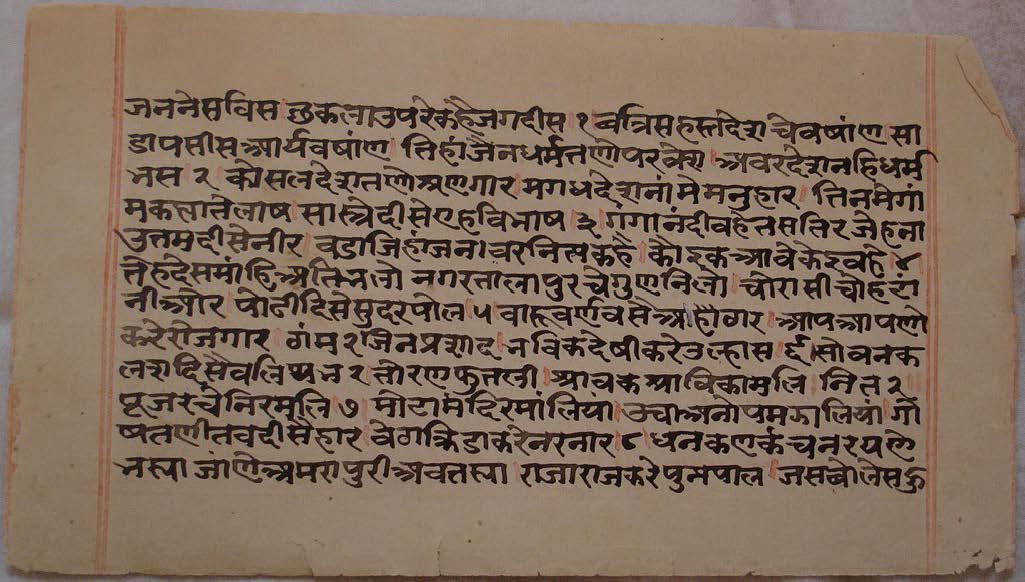 जनने सविस शुकलाउपरेकहैजगदीस १ बत्रिसहस्तदेश चेवषांण सा
डापसीसआर्यवषांण तिहांजैनधर्मतणोपरवस्यो अवरदेशनहिधर्म
नस २ कोसलदेशतणेअणगार मगधदेशनांमेमनुहार तिनमेगां
मुकतातेलाष सास्त्रेदीसेएहविभाष ३ गंगानंदीवहेनसतिर जेहना
उत्तमदीसेनीर वडाजिहांजनावर कहे आवेके ४
तेहदेसमांहिअतिभलो नगरतालापुरचेगुणनिलो चोरासीचोहटा
नीओर पोलीदिसेसुदरपोल ५ चारुवर्णवसे आपआपणो
करेरोजगार जिनप्रशाद नविकदेषीकरेउल्हास सोवनक
लशदिसै तोरण श्रावकश्राविका नित २
पूजरचेनिरमुलि ७ मोटामंदिरमांलियां अनोपमजालियां गो
षतणीतवदीसेहार वेगक्रिडाकरेनरनार ८ धनकणकंचनरयणे
नस्या जांणेअमरापुरीअवतस्या राजाराजकरेपुनपाल जसबोलेसहु